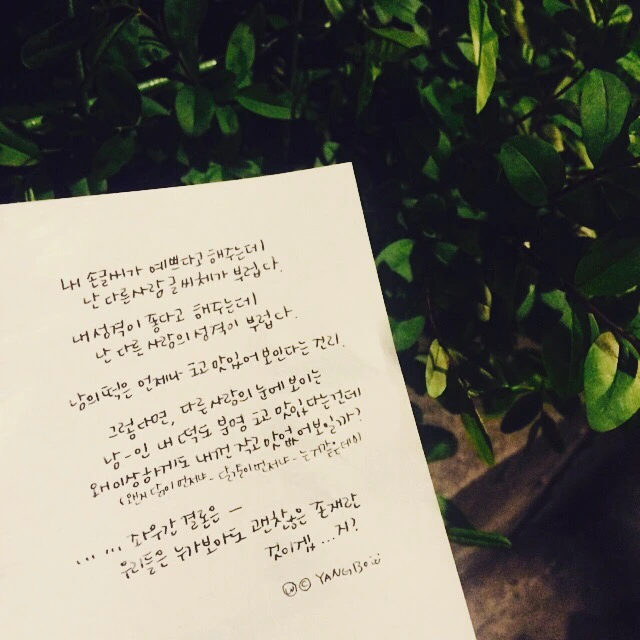 내 손글씨가 예쁘다고 해주는데
난 다른사람 글씨체가 부럽다.
내 성격이 좋다고 해주는데
난 다른 사람의 성격이 부럽다.
남의 떡은 언제나 크고 맛있어 보인다는 진리.
그렇다면, 다른사람의 눈에 보이는
남-인 내 떡도 분명 크고 맛있다는건데
왜 이상하게도 내껀 작고 맛없어 보일까?
(왠지 닭이 먼저냐- 달걀이 먼저냐- 는거같은데)
...... 좌우간 결론은 -
우리들은 누가보아도 괜찮은 존재란
것이겠...지?
© YANGIBO